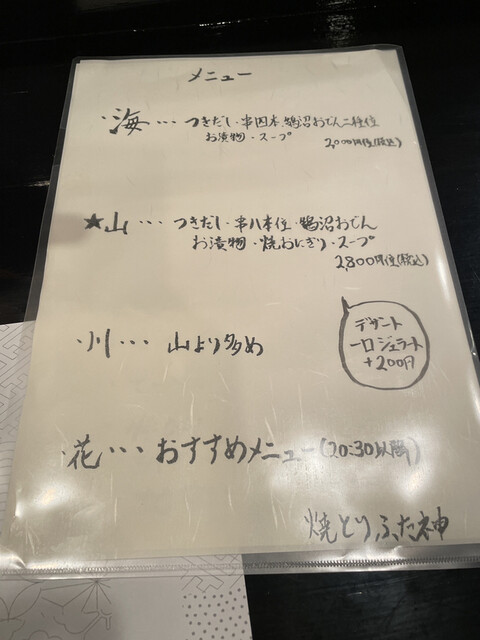 メニュー
・海・・・つきだし・串四本・鵠沼おでん二種位
お漬物・スープ
2,000円位(税込)
★山・・・つきだし・串八本位・鵠沼おでん
お漬物・焼おにぎり・スープ
2,800円位(税込)
・川・・・山より多め
デザート
一口ジェラート
+200円
・花・・・おすすめメニュー(20:30以降)
焼とりふた神